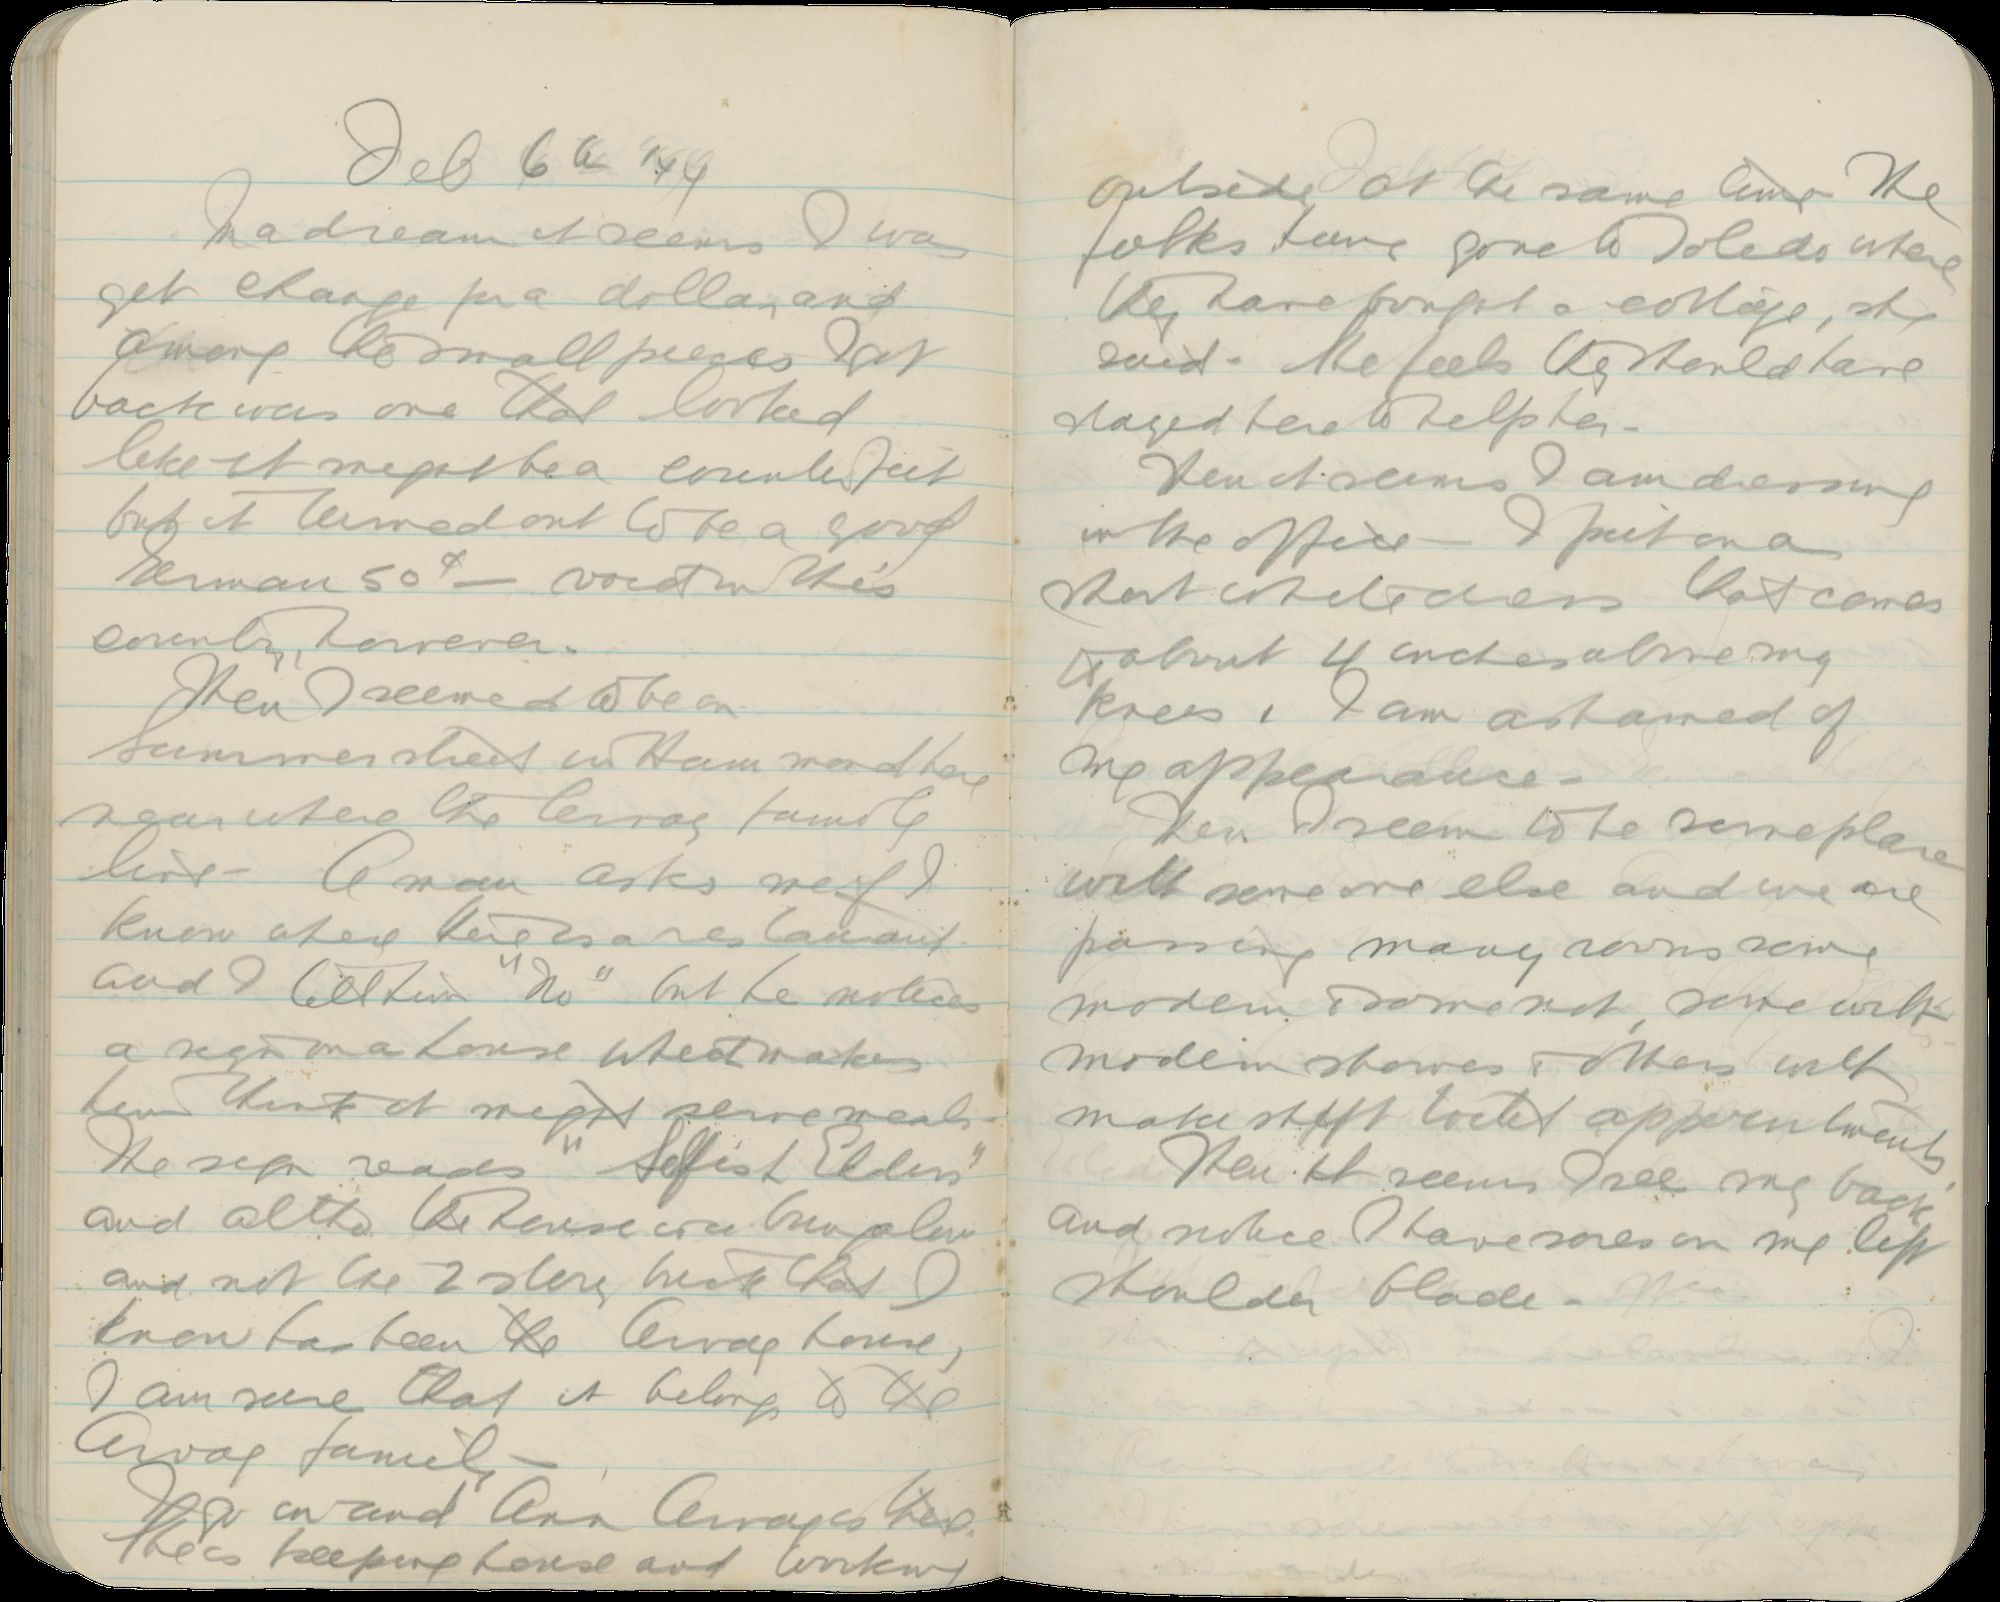 Feb 6th '44
In a dream it seems I was
get change for a dollar, and
among the small pieces I got
back was one that looked
like it might be a counterfeit
but it turned out to be a good
German 50¢ — void in this
country, however.
Then I seemed to be on
Summer street in Hammond here
near where the Arvay family
live - A man asks me if I
know where there is a restaurant
and I tell him "No" but he notices
a sign on a house which makes
him think it might serve meals -
The sign reads "Selfish Elders"
and altho the house is a bungalow
and not the 2 story brick that I
know has been the Arvay house,
I am sure that it belongs to the
Arvay family —
I go in and Ann Arvay is there.
She is keeping house and working
outside at the same time The
folks have gone to Toledo where
they have bought a cottage, she
said - She feels they should have
stayed here to help her -
Then it seems I am dressing
in the office — I put on a
short white dress that comes
about 4 inches above my
knees, I am ashamed of
my appearance -
Then I seem to be someplace
with someone else and we are
passing many rooms some
modern & some not, some with
modern showers & others with
makeshift toilet appointments.
Then it seems I see my back
and notice I have sores on my left
shoulder blade -